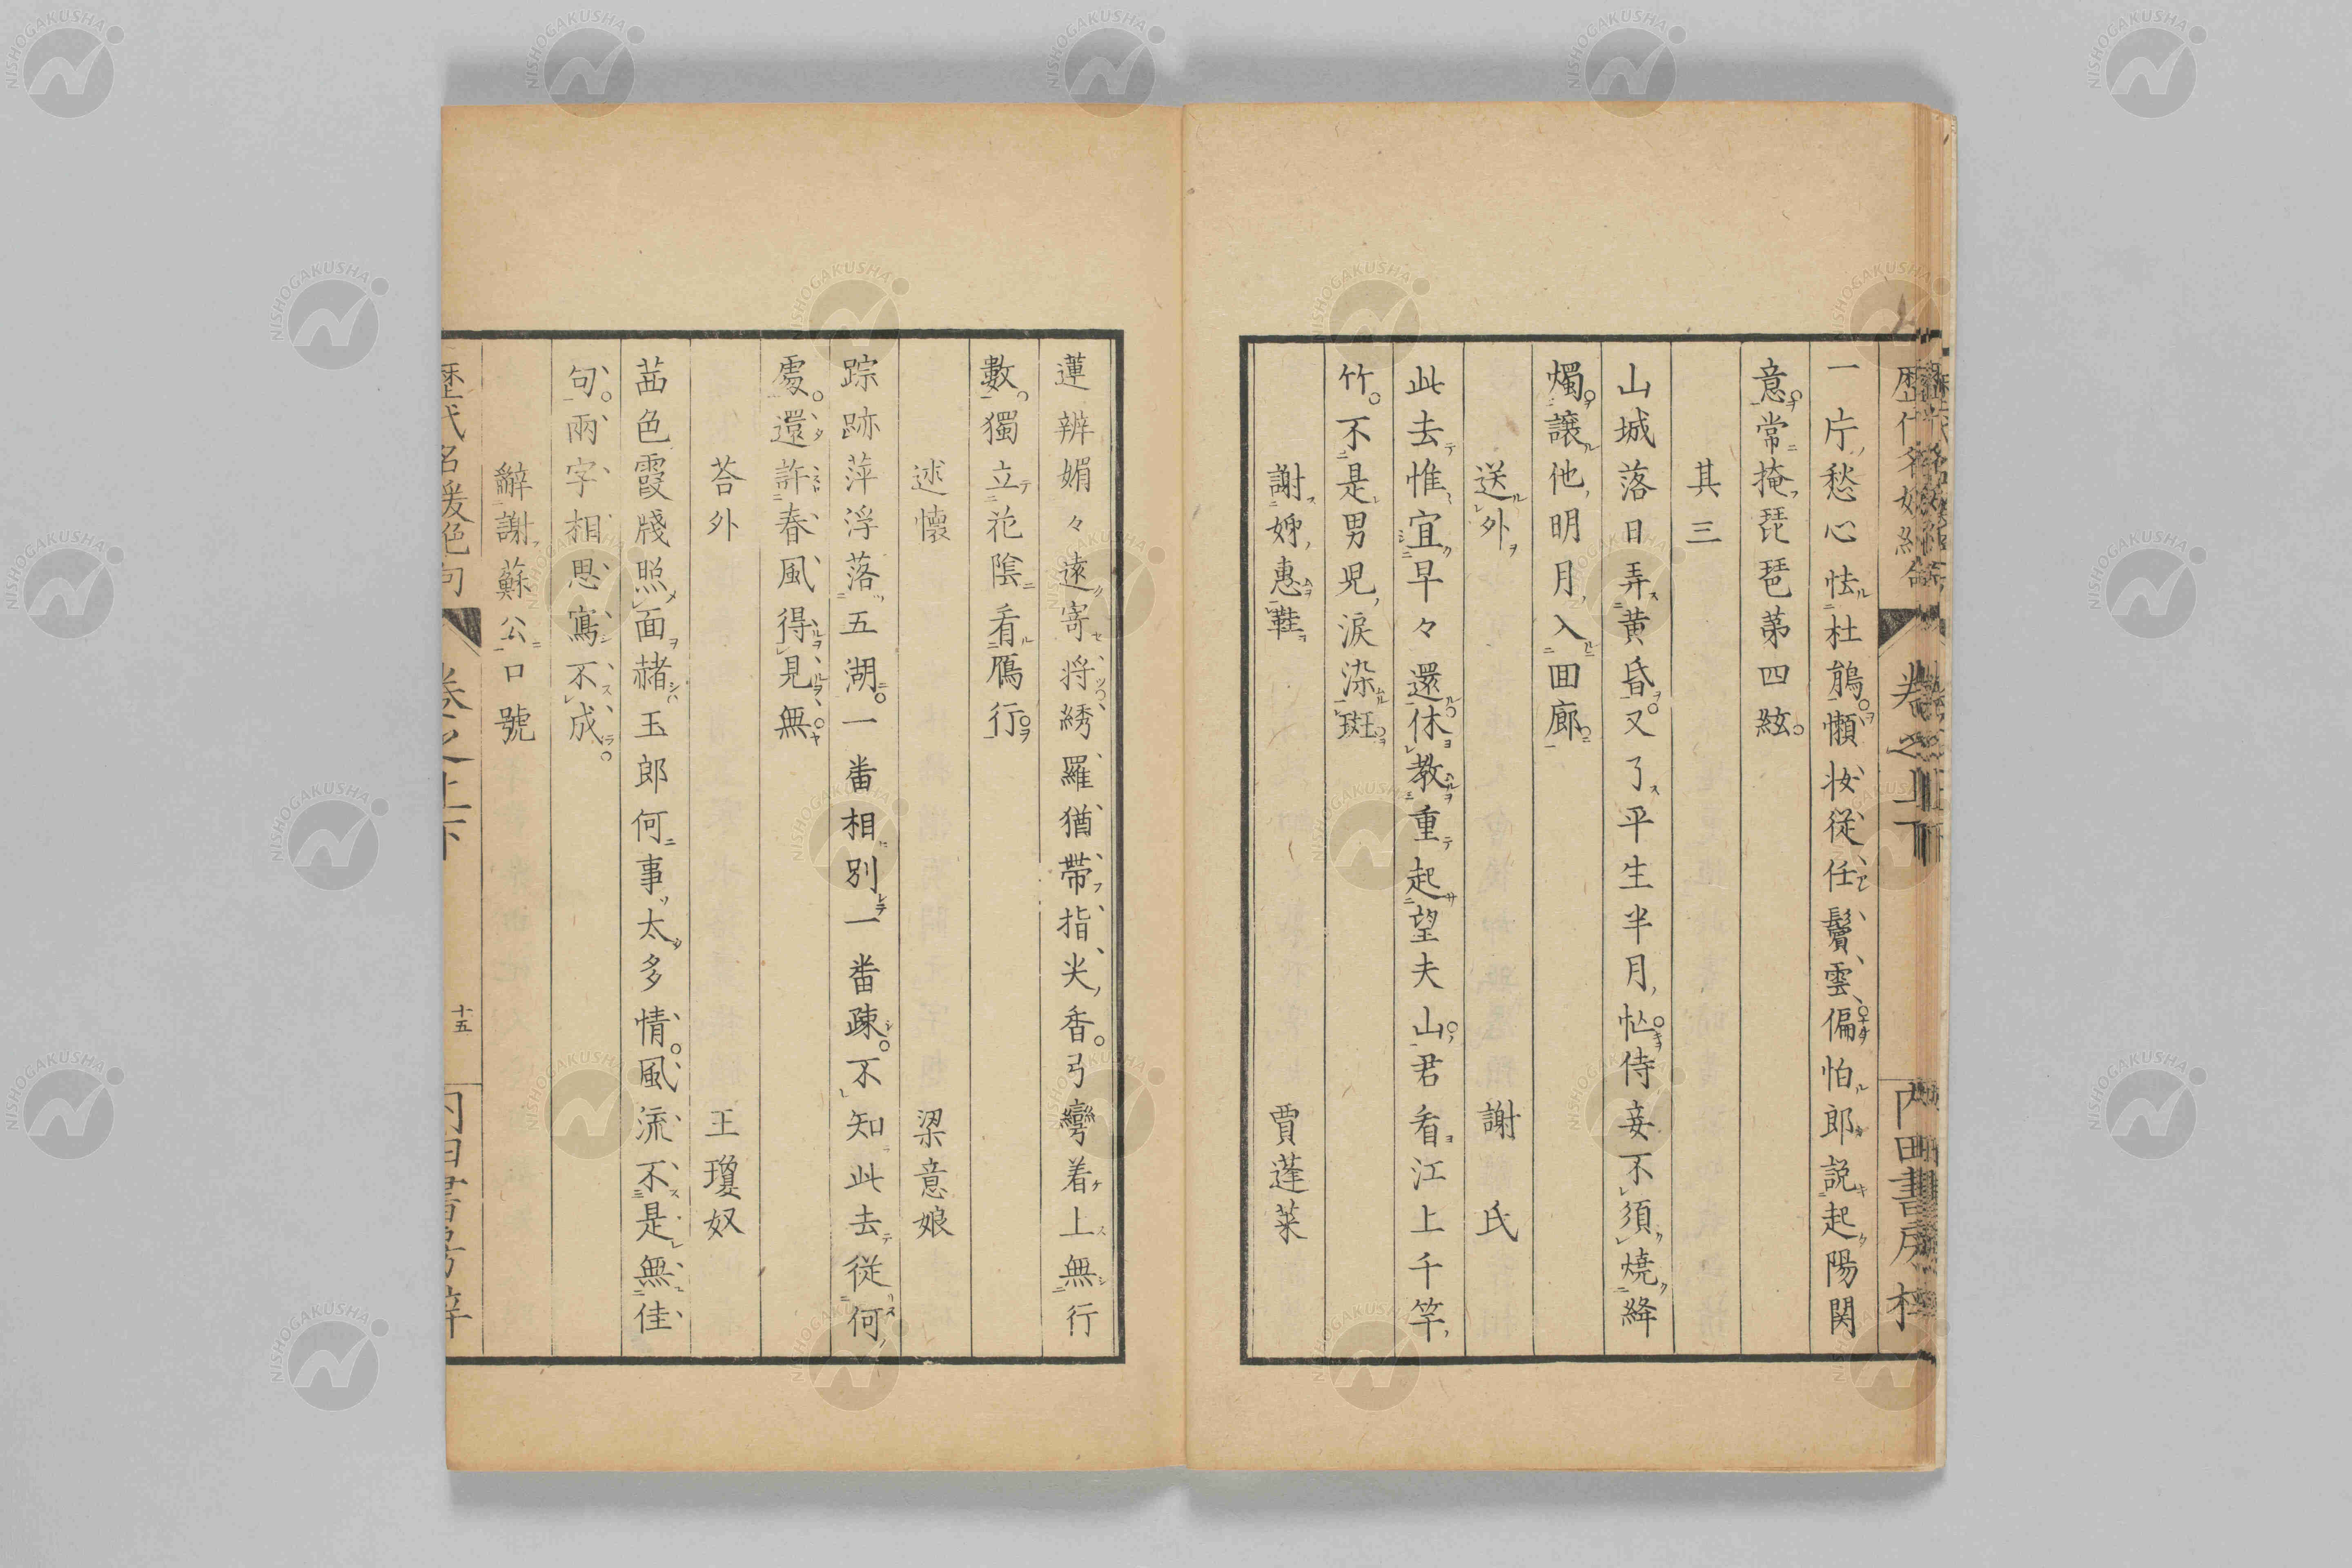 一片愁心怯杜鵑懶妝從任鬢雲偏怕郎説起陽関
意常掩琵琶苐四絃
其三
山城落日弄黄昏又了平生半月忙侍妾不須燒絳
燭讓他明月入回廊
送外 謝氏
此去惟宜早々還休教重起望夫山君看江上千竿
竹不是男児淚染斑
謝姊惠鞋 賈蓬萊
蓮辨娟々遠寄将綉羅猶帶指尖香弓彎着上無行
數獨立花陰看鴈行
述懷 梁意娘
踪跡萍浮落五湖一畨相別一畨踈不知此去從何
處還許春風得見無
荅外 王瓊奴
茜色霞牋照面赭玉郎何事太多情風流不是無佳
句兩字相思寫不成
辭謝蘇公口號
歴代名媛絶句 卷之上下 十五